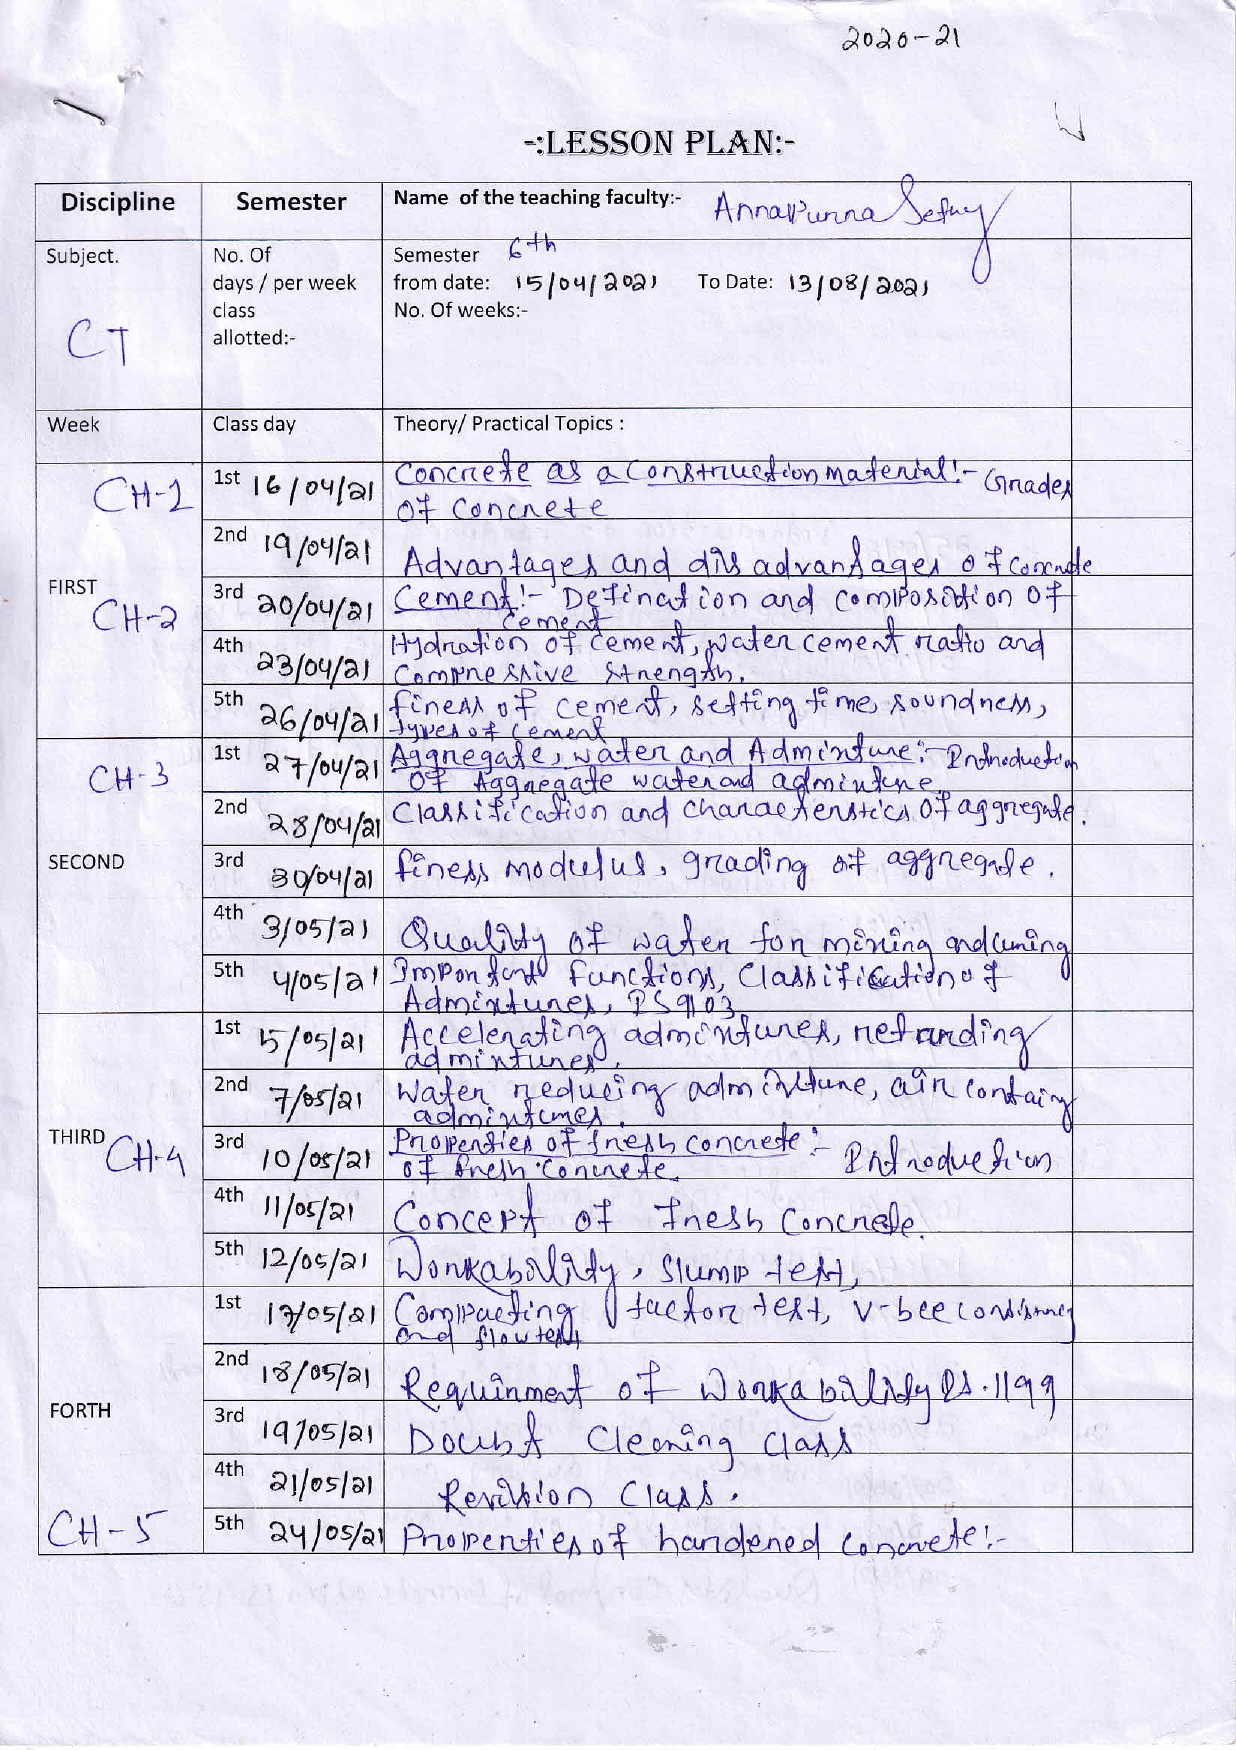 2020-21
-:LESSON PLAN:-
Discipline Semester Name of the teaching faculty:- Annapurna Sethy
Subject. No. Of Semester 6th
days / per week from date: 15/04/2021 To Date: 13/08/2021
class No. Of weeks:-
CT allotted:-
Week Class day Theory/ Practical Topics :
CH-1 1st 16/04/21 Concrete as a Construction material:- Grades
of Concrete
2nd 19/04/21 Advantages and disadvantages of concrete
FIRST CH-2 3rd 20/04/21 Cement:- Defination and composition of
cement
4th 23/04/21 Hydration of cement, water cement ratio and
Compressive strength.
5th 26/04/21 finess of cement, setting time, soundness,
types of cement
CH-3 1st 27/04/21 Aggregate, water and Admixture:- Introduction
of Aggregate water and admixture.
2nd 28/04/21 Classification and characterstics of aggregate.
SECOND 3rd 30/04/21 finess modulus, grading of aggregate.
4th 3/05/21 Quality of water for mixing and curing
5th 4/05/21 Important functions, Classification of
Admixtures, IS 9103
1st 5/05/21 Accelerating admixtures, retarding
admixtures.
2nd 7/05/21 Water reducing admixture, air containg
admixtures.
THIRD CH-4 3rd 10/05/21 Properties of fresh concrete:- Introduction
of fresh concrete.
4th 11/05/21 Concept of fresh concrete.
5th 12/05/21 Workability, Slump test,
1st 17/05/21 Compacting factor test, V-bee
and flow test
2nd 18/05/21 Requirment of workability IS.1199
FORTH 3rd 19/05/21 Doubt Clearing Class
4th 21/05/21 Revision Class.
CH-5 5th 24/05/21 Properties of hardened concrete:-